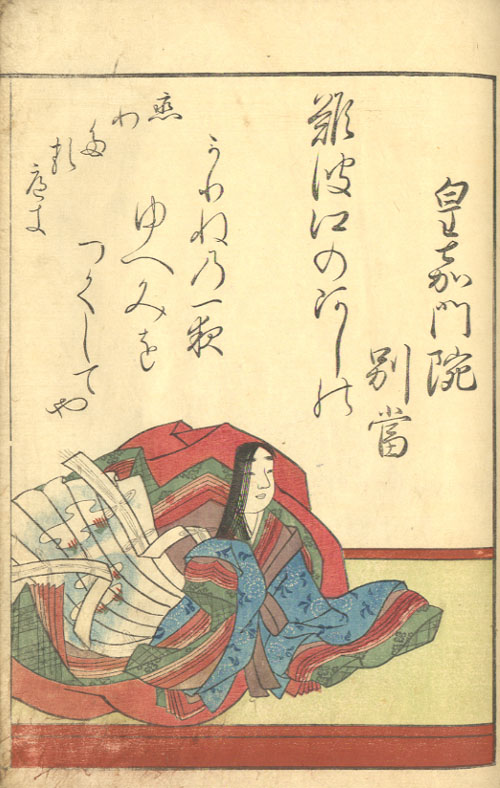 皇嘉門院
別當
難波江の阿しの
かりねの一夜
ゆへみを
つくしてや
恋
わ
多
る
へき